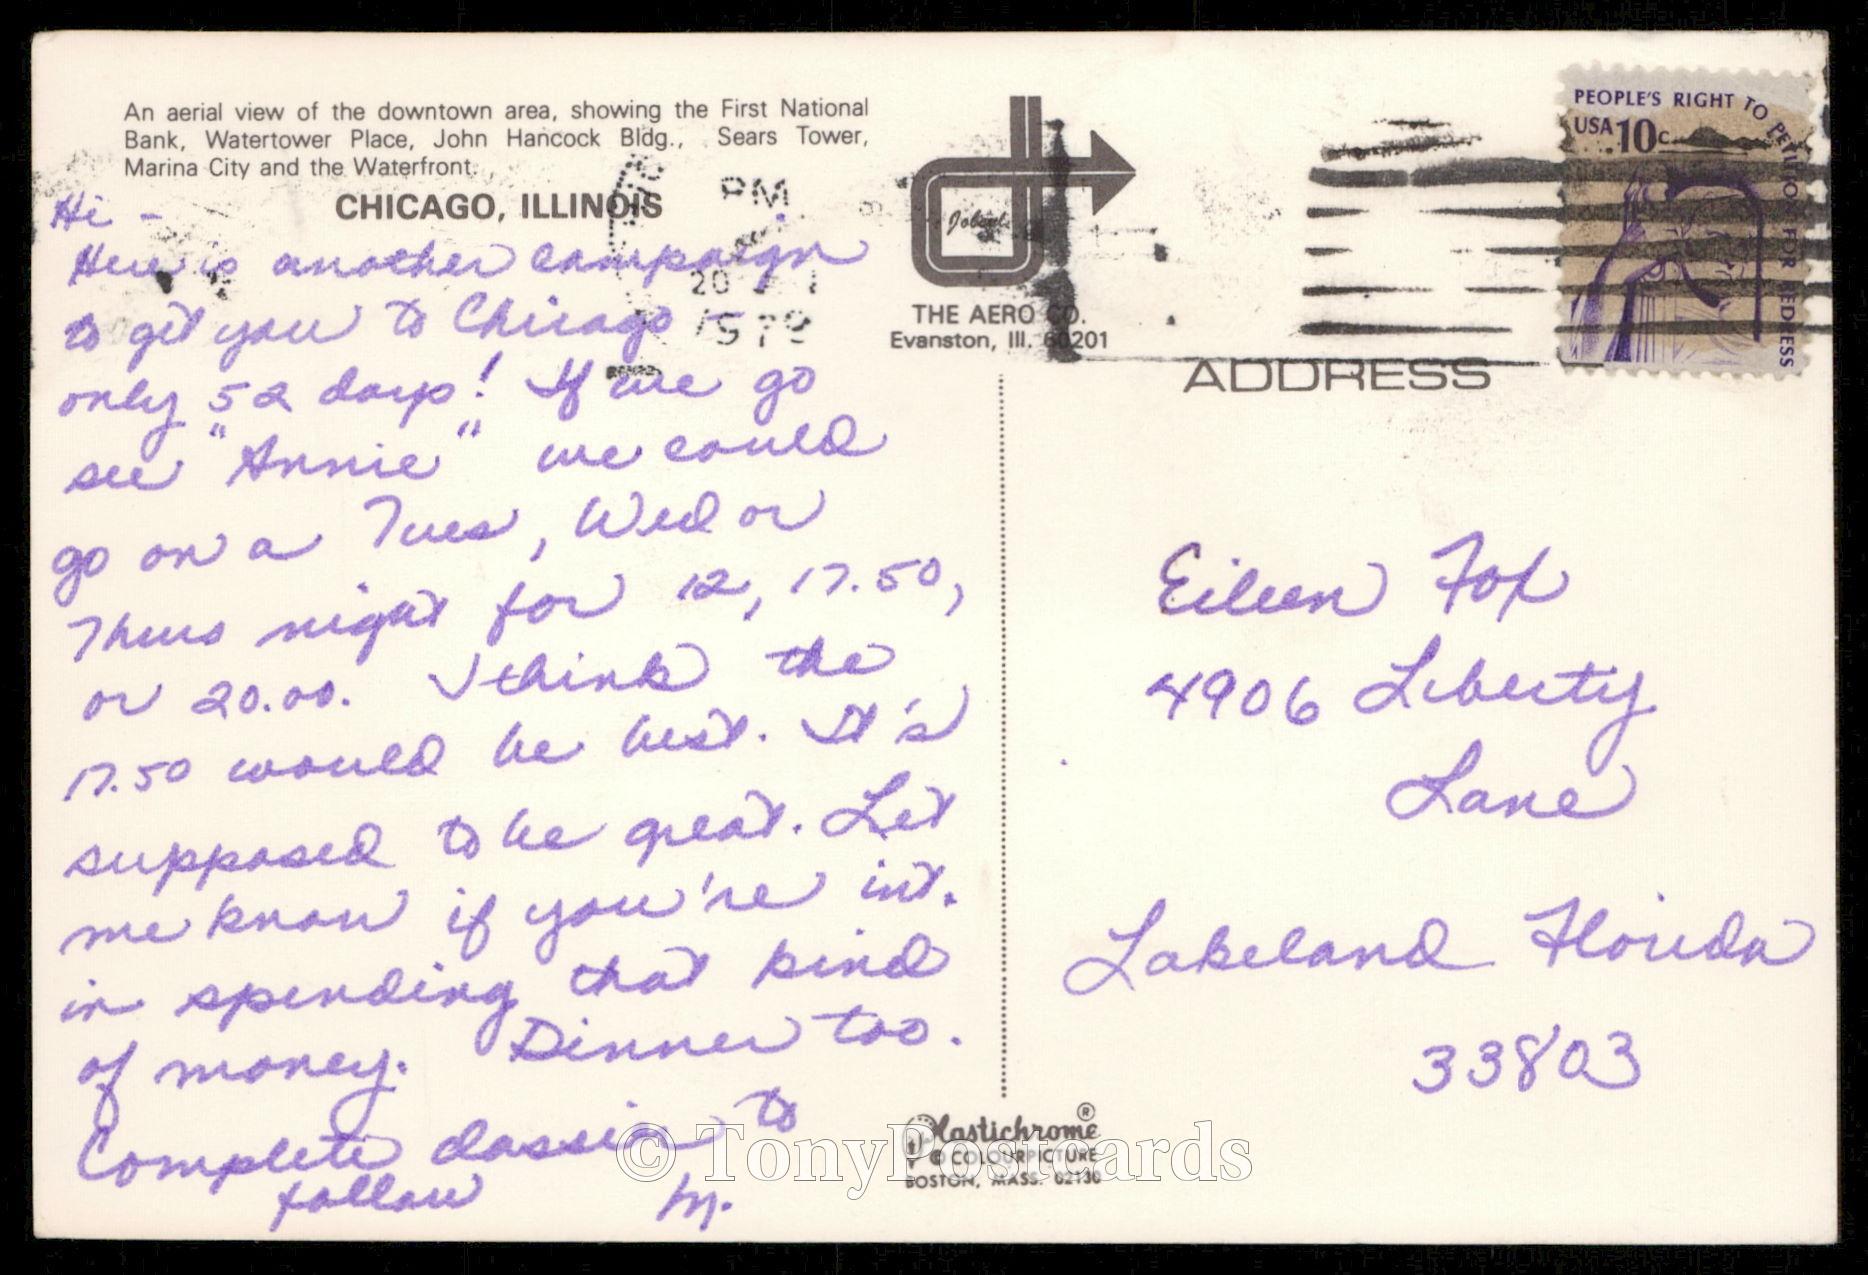 An aerial view of the downtown area, showing the First National
Bank, Watertower Place, John Hancock Bldg., Sears Tower,
Marina City and the Waterfront.
CHICAGO, ILLINOIS
Hi -
Here is another campaign
to get you to Chicago -
only 52 days! If we go
see "Annie" we could
go on a Tues, Wed or
Thurs night for 12, 17.50,
or 20.00. I think the
17.50 would be best. It's
supposed to be great. Let
me know if you're int.
in spending that kind
of money. Dinner too.
Complete dossier to
follow M.
PM
20
1979
THE AERO CO.
Evanston, Ill. 60201
PEOPLE'S RIGHT TO PETITION FOR REDRESS
USA 10c
ADDRESS
Eileen Fox
4906 Liberty
Lane
Lakeland Florida
33803
Plastichrome ®
© COLOURPICTURE
BOSTON, MASS. 02130
© TonyPostcards